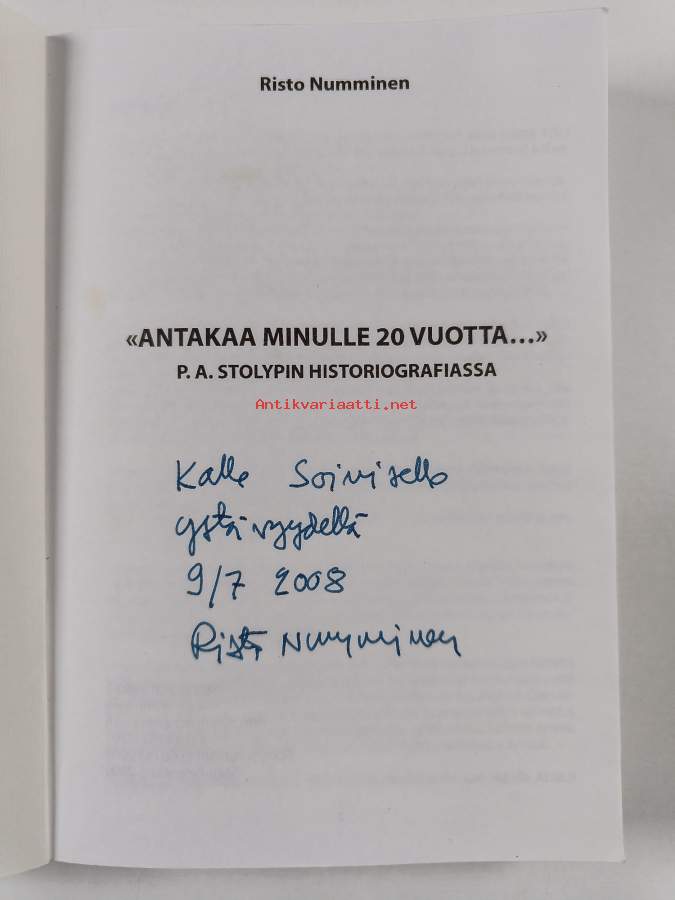 Risto Numminen
«ANTAKAA MINULLE 20 VUOTTA...»
P. A. STOLYPIN HISTORIOGRAFIASSA
Antikvariaatti.net
Kalle
ystävyydellä
9/7 2008
Risto Numminen